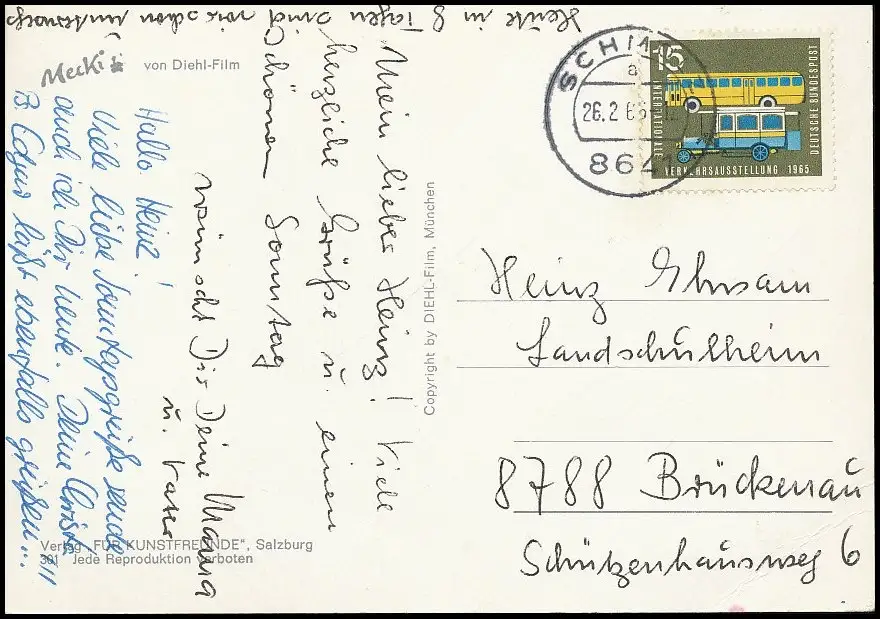 Heute in 8 Tagen sind wir schon unterwegs
Mecki
von Diehl-Film
Mein lieber Heinz! Viele
herzliche Grüße u. einen
schönen Sonntag
wünscht Dir Deine Mama
u. Vater
Hallo Heinz!
Viele liebe Sonntagsgrüße sende
auch ich Dir heute. Deine Christ
B. Edgar läßt ebenfalls grüßen...!!!
Copyright by DIEHL-Film, München
Verlag „FÜR KUNSTFREUNDE", Salzburg
301 Jede Reproduktion verboten
a
26.2.66
8641
15
INTERNATIONALE
VERKEHRSAUSSTELLUNG 1965
DEUTSCHE BUNDESPOST
Heinz Ehrsam
Landschulheim
8788 Brückenau
Schützenhausweg 6